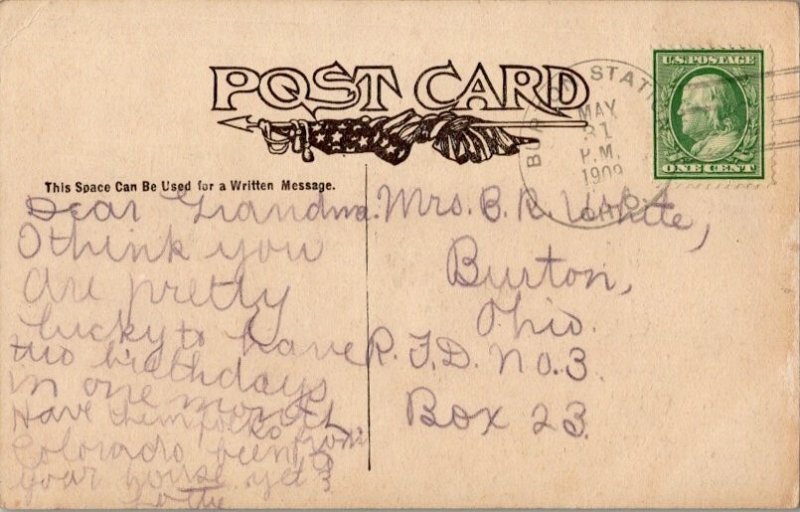 POST CARD
This Space Can Be Used for a Written Message.
BURTON STATION
MAY
31
P.M.
1909
OHIO
U.S. POSTAGE
ONE CENT
Dear Grandma.
I think you
are pretty
lucky to have
two birthdays
in one month
Have them folks from
Colorado been to
your house yet?
Lottie
Mrs. B. R. White,
Burton,
Ohio.
R. F. D. No. 3.
Box 23.